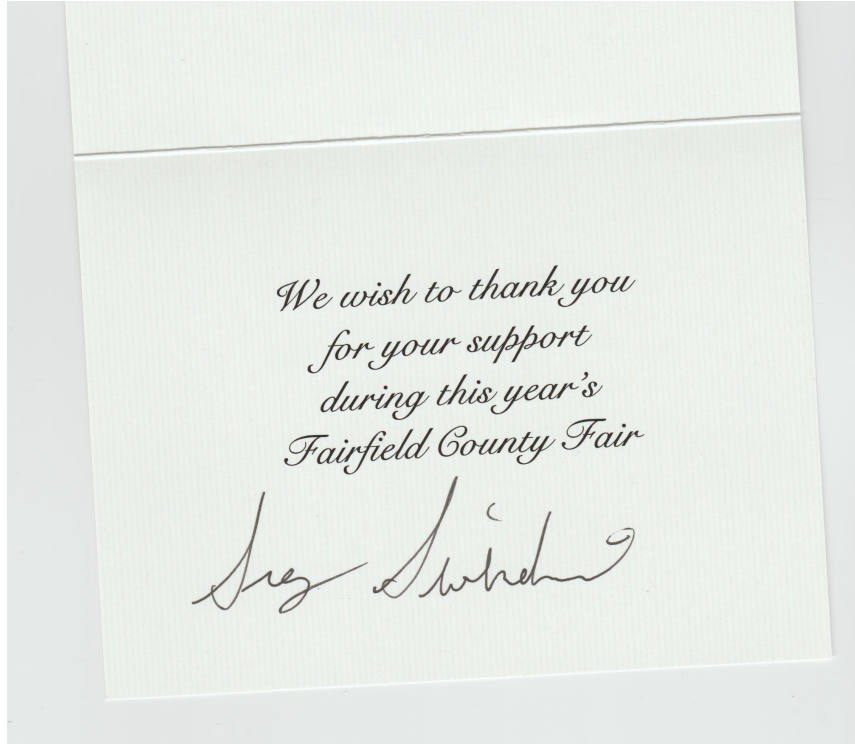 We wish to thank you
for your support
during this year's
Fairfield County Fair